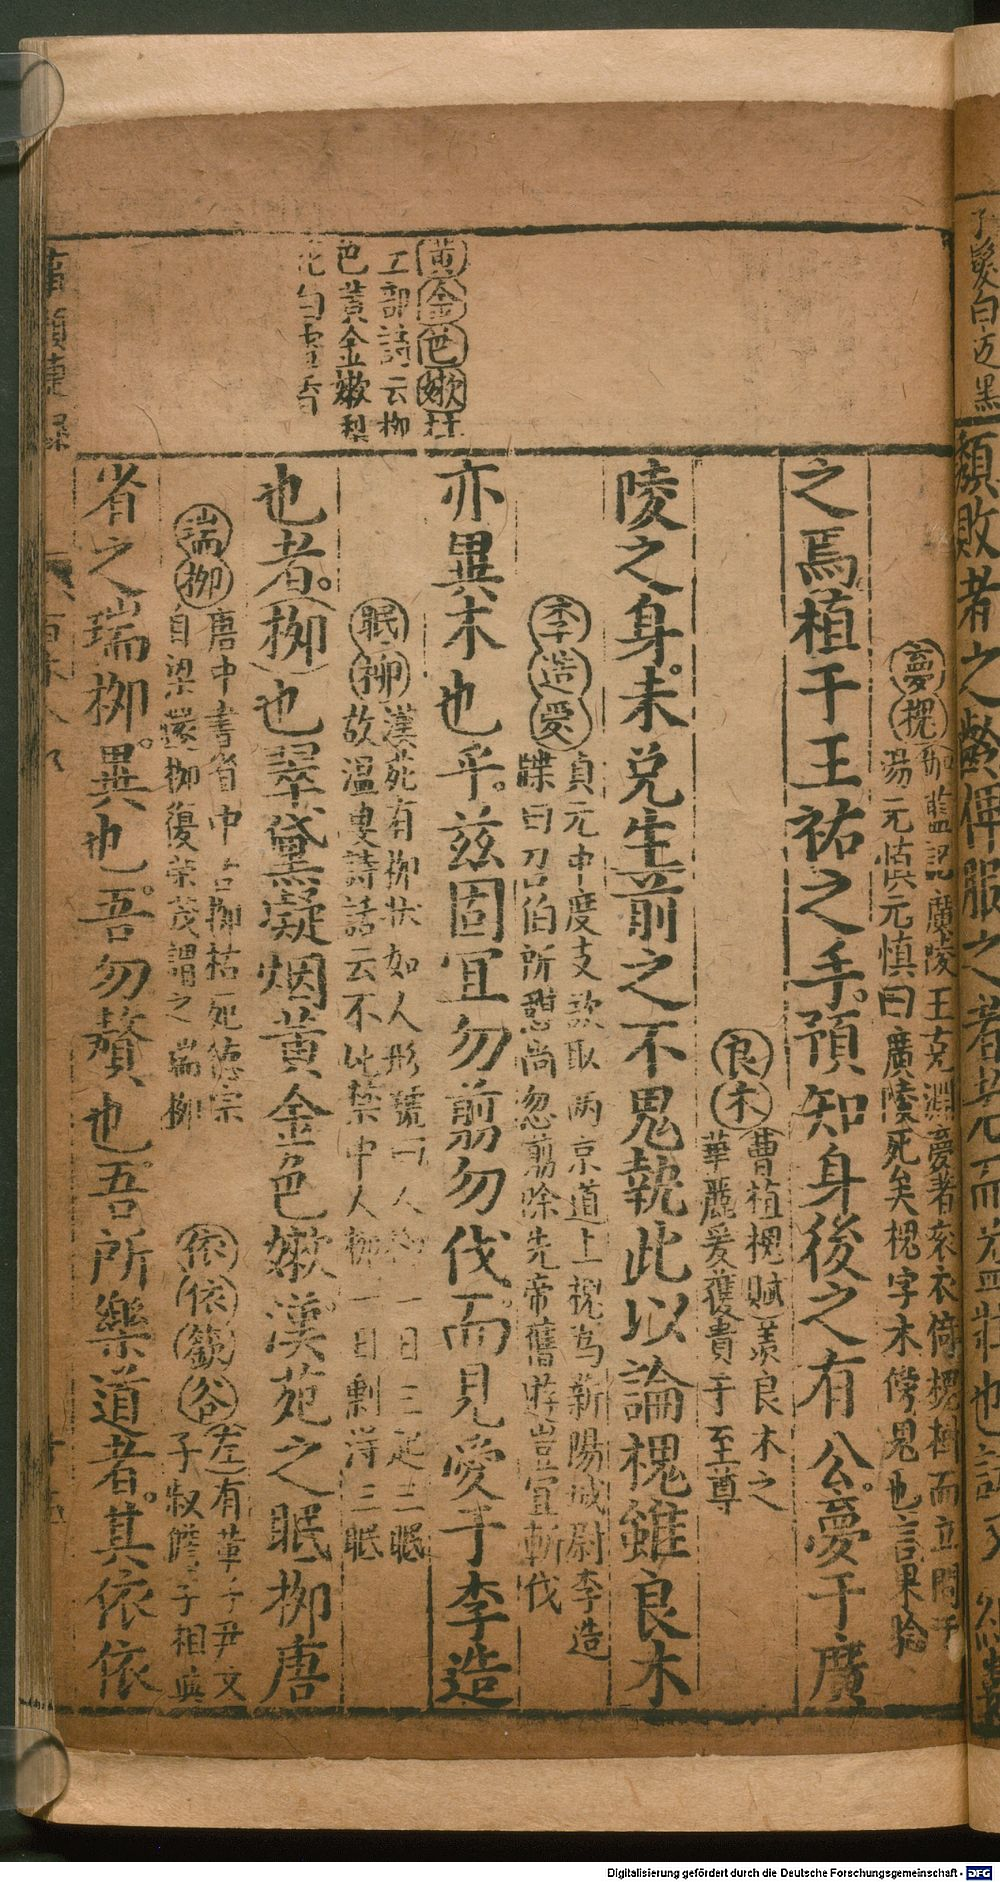 黃金色嫩 杜
工部詩云栁
色黃金嫩梨
花白雪香
夢槐 伽藍記廣陵王克淵夢著衮衣倚槐樹而立問于
湯元慎元慎曰廣陵死矣槐字木傍鬼也言果騐
之焉植于王祐之手預知身後之有公夢于廣
良木 曹植槐賦羨良木之
華麗爰獲貴于至尊
陵之身未兌生前之不鬼執此以論槐雖良木
李造愛 貞元中度支欲取两京道上槐為新陽城尉李造
牒曰召伯所憇尚忽剪除先帝舊遊豈宜斬伐
亦異木也乎兹固宜勿翦勿伐而見愛于李造
眠柳 漢苑有栁狀如人形號曰人栁一日三起三眠
故溫婁詩話云不比禁中人栁一日剰得三眠
也者栁也翠黛凝烟黃金色嫩漢苑之眠栁唐
瑞栁 唐中書省中古栁枯死德宗
自梁還栁復荣茂謂之瑞栁
依依籛谷 左有葦子尹文
子叔 子相與
省之瑞栁異也吾勿贅也吾所樂道者其依依
Digitalisierung gefördert durch die Deutsche Forschungsgemeinschaft - DFG